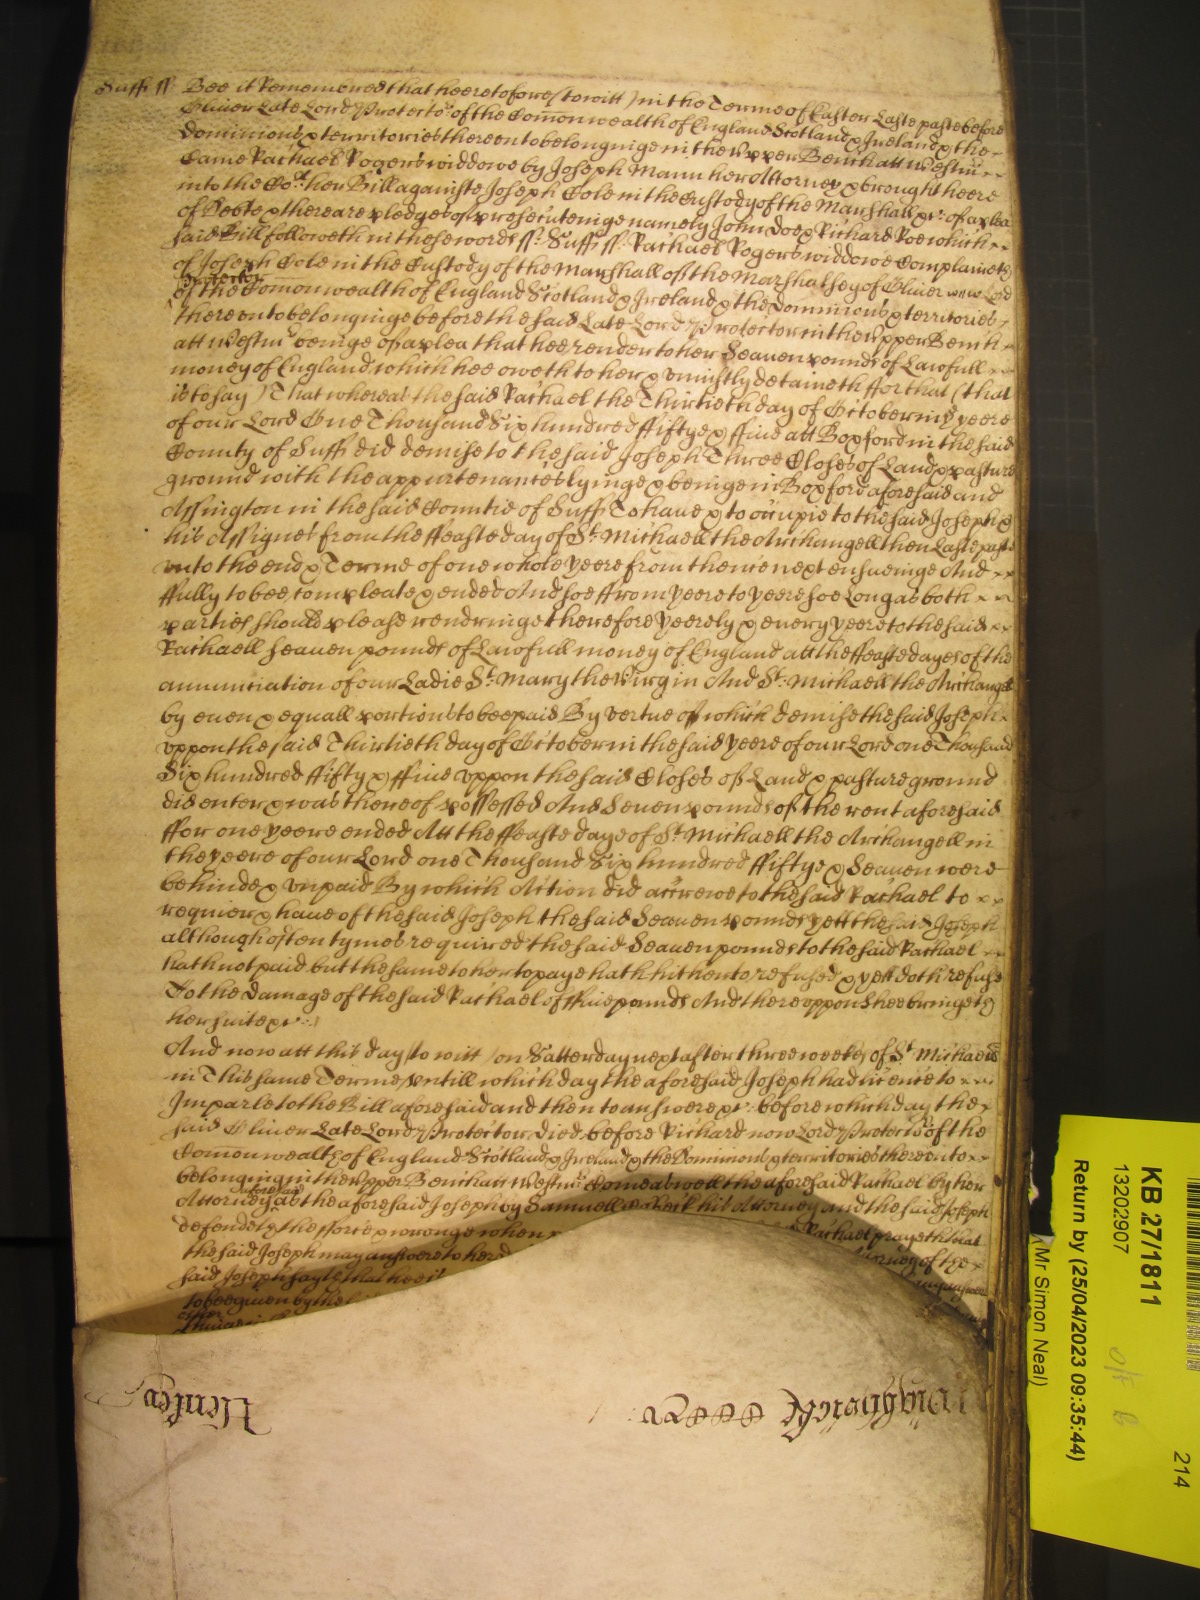 Suff ss Bee it Remembred that heeretofore (to witt) in the Terme of Easter Laste paste before
Oliver Late Lord Protector of the Comonwealth of England Scotland & Ireland & the
Dominions & territories thereunto belonginge in the upper Bench att Westm
Came Rachael Rogers widdowe by Joseph Mann her Attorney & brought heere
into the Cort her Bill againste Joseph Cole in the Custody of the Marshall &c of a plea
of Debte & there are pledges of prosecuteinge namely John Doe & Richard Roe which
said Bill followeth in these words ss Suff ss Rachael Rogers widdowe Complaineth
of Joseph Cole in the Custody of the Marshall of the Marshalsey of Oliver now Lord
Protector
of the Comonwealth of England Scotland & Ireland & the Dominions & territories
thereunto belonginge before the said Late Lord Protector in the upper Bench
att Westmr beinge of a plea that hee render to her Seaven pounds of Lawfull
money of England which hee oweth to her & uniustly detaineth ffor that (that
is to say) That whereas the said Rachael the Thirtieth day of October in ye yeere
of our Lord One Thousand Six hundred ffiftye & ffive att Boxford in the said
County of Suff did demise to the said Joseph Three Closes of Land & pasture
ground with the appurtenances lyinge & beinge in Boxford aforesaid and
Assington in the said Countie of Suff To have & to occupie to the said Joseph &
his Assignes from the ffeaste day of St Michaell the Archangell then Laste paste
unto the end & Terme of one whole yeere from thence next ensueinge And
ffully to bee compleate & ended And soe ffrom yeere to yeere soe Long as both
parties should please rendringe therefore yeerely & every yeere to the said
Rachaell Seaven pounds of Lawfull money of England att the ffeaste dayes of the
annunciation of our Ladie St Mary the Virgin And St Michaell the Archangell
by even & equall portions to bee paid By vertue of which demise the said Joseph
uppon the said Thirtieth day of October in the said yeere of our Lord one Thousand
Six hundred ffifty & ffive uppon the said Closes of Land & pasture ground
did enter & was thereof possessed And Seven pounds of the rent aforesaid
ffor one yeere ended Att the ffeaste daye of St Michaell the Archangell in
the yeere of our Lord one Thousand Six hundred ffiftye & Seaven were
behinde & unpaid By which Action did accrewe to the said Rachael to
requier & have of the said Joseph the said Seaven pounds yett the said Joseph
although often tymes required the said Seaven pounds to the said Rachael
hath not paid but the same to her to paye hath hitherto refused & yett doth refuse
To the Damage of the said Rachael of ffive pounds And thereuppon shee bringeth
her suite &c
And now att this day (to witt) on Satterday next after three weekes of St Michaell
in This same Terme untill which day the aforesaid Joseph had licence to
Imparle to the Bill aforesaid and then to answere &c before which day the
said Oliver Late Lord Protector died before Richard now Lord Protector of the
Comonwealth of England Scotland & Ireland & the Dominions & territories thereunto
belonging in the upper Bench att Westmr Come aswell the aforesaid Rachael by her
aforesaid
Attorney as the aforesaid Joseph by Samuell his Attorney And the said Joseph
defendeth the fforce & wronge when Rachael prayeth that
the said Joseph may answere to her of the
said Joseph sayth that hee
to bee given by the
KB 27/1811
13202907
Return by (25/04/2023 09:35:44)
(Mr Simon Neal)
214